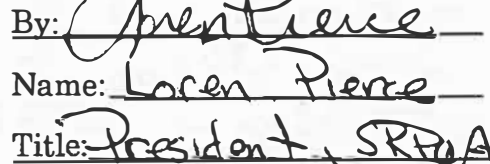 By: Loren Pierce
Name: Loren Pierce
Title: President, SRPOA